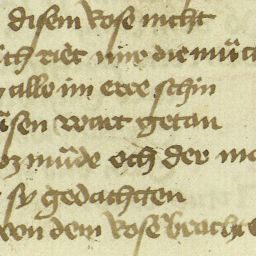 disem rose nicht
ich riet mir die mů
allo im erre schin
sen wart getan
můde och der
sy gedachten
von dem rose bracht